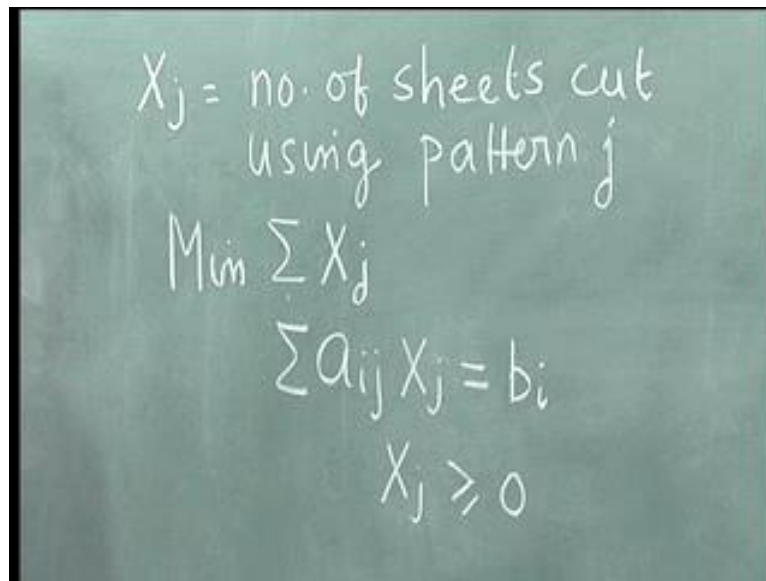 Xj = no. of sheets cut
using pattern j
Min ∑ Xj
∑ aij Xj = bi
Xj ≥ 0